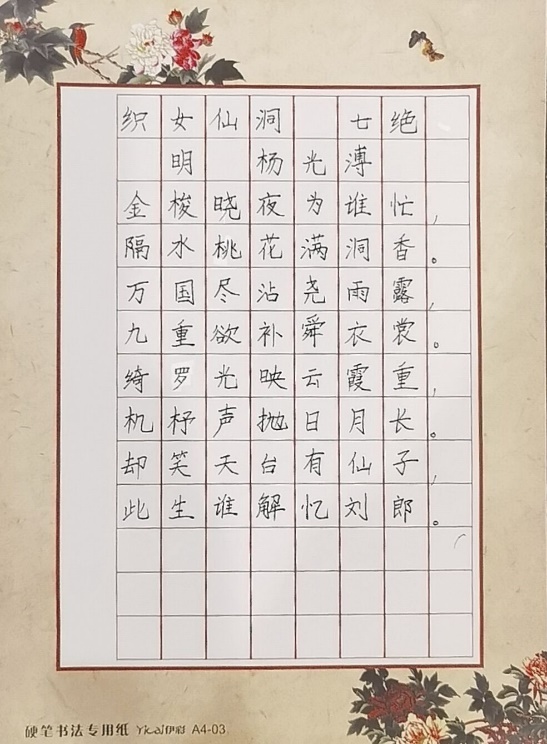 织女仙洞 七绝
明 杨光溥
金梭晓夜为谁忙,
隔水桃花满洞香。
万国尽沾尧雨露,
九重欲补舜衣裳。
绮罗光映云霞重,
机杼声抛日月长。
却笑天台有仙子,
此生谁解忆刘郎。
硬笔书法专用纸 Yicai伊彩 A4-03